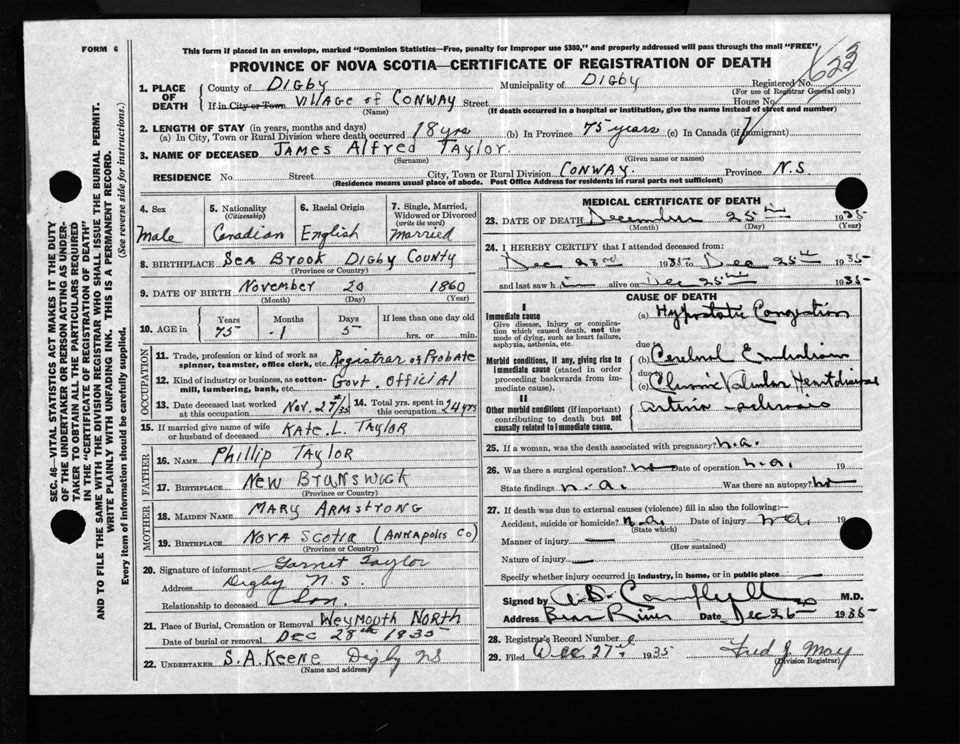 FORM 6
This form if placed in an envelope, marked "Dominion Statistics—Free, penalty for improper use $300," and properly addressed will pass through the mail "FREE"
PROVINCE OF NOVA SCOTIA—CERTIFICATE OF REGISTRATION OF DEATH
1. PLACE OF DEATH
County of DIGBY Municipality of DIGBY Registered No.
(For use of Registrar General only)
If in City or Town Village of CONWAY Street House No.
(Name) (If death occurred in a hospital or institution, give the name instead of street and number)
2. LENGTH OF STAY (in years, months and days)
(a) In City, Town or Rural Division where death occurred 18 yrs (b) In Province 75 years (c) In Canada (if immigrant)
3. NAME OF DECEASED JAMES Alfred TAYLOR.
(Surname) (Given name or names)
RESIDENCE No. Street City, Town or Rural Division CONWAY. Province N.S.
(Residence means usual place of abode. Post Office Address for residents in rural parts not sufficient)
SEC. 46—VITAL STATISTICS ACT MAKES IT THE DUTY
OF THE UNDERTAKER OR PERSON ACTING AS UNDER-
TAKER TO OBTAIN ALL THE PARTICULARS REQUIRED
IN THE "CERTIFICATE OF REGISTRATION OF DEATH"
AND TO FILE THE SAME WITH THE DIVISION REGISTRAR WHO SHALL ISSUE THE BURIAL PERMIT.
WRITE PLAINLY WITH UNFADING INK. THIS IS A PERMANENT RECORD.
Every item of information should be carefully supplied. (See reverse side for instructions.)
4. Sex 5. Nationality (Citizenship) 6. Racial Origin 7. Single, Married, Widowed or Divorced (write the word)
Male Canadian English Married
8. BIRTHPLACE Sea Brook DIGBY County
(Province or Country)
9. DATE OF BIRTH November 20 1860
(Month) (Day) (Year)
10. AGE in Years Months Days If less than one day old
75 - 1 5 hrs. or min.
OCCUPATION
11. Trade, profession or kind of work as spinner, teamster, office clerk, etc. Registrar of Probate
12. Kind of industry or business, as cotton-mill, lumbering, bank, etc. Govt. Official
13. Date deceased last worked at this occupation Nov. 27/35 14. Total yrs. spent in this occupation 24 yrs
15. If married give name of wife or husband of deceased KATE. L. TAYLOR
FATHER
16. NAME Phillip TAYLOR
17. BIRTHPLACE NEW BRUNSWICK
(Province or Country)
MOTHER
18. MAIDEN NAME MARY ARMSTRONG
19. BIRTHPLACE NOVA SCOTIA (ANNAPOLIS CO)
(Province or Country)
20. Signature of informant Garnet Taylor
Address Digby N.S.
Relationship to deceased Son.
21. Place of Burial, Cremation or Removal WEYMOUTH NORTH
Date of burial or removal DEC 28th 1935
22. UNDERTAKER S.A. KEENE Digby NS
(Name and address)
MEDICAL CERTIFICATE OF DEATH
23. DATE OF DEATH December 25th 1935
(Month) (Day) (Year)
24. I HEREBY CERTIFY that I attended deceased from:
Dec 23rd 1935 to Dec 25th 1935
and last saw him alive on Dec 25th 1935
CAUSE OF DEATH
I
Immediate cause
Give disease, injury or complication which caused death, not the mode of dying, such as heart failure, asphyxia, asthenia, etc.
(a) Hypostatic Congestion
due to
Morbid conditions, if any, giving rise to immediate cause (stated in order proceeding backwards from immediate cause).
(b) Cerebral Embolism
due to
(c) Chronic Valvular Heart disease
II
Other morbid conditions (if important) contributing to death but not causally related to immediate cause.
Arterio sclerosis
25. If a woman, was the death associated with pregnancy? n.a.
26. Was there a surgical operation? no Date of operation n.a. 19
State findings n.a. Was there an autopsy? no
27. If death was due to external causes (violence) fill in also the following:—
Accident, suicide or homicide? n.a. Date of injury n.a. 19
(State which)
Manner of injury —
(How sustained)
Nature of injury —
Specify whether injury occurred in industry, in home, or in public place —
Signed by M.D.
Address Bear River Date Dec 26 1935
28. Registrar's Record Number
29. Filed Dec 27th 1935 Fred J. May
(Division Registrar)